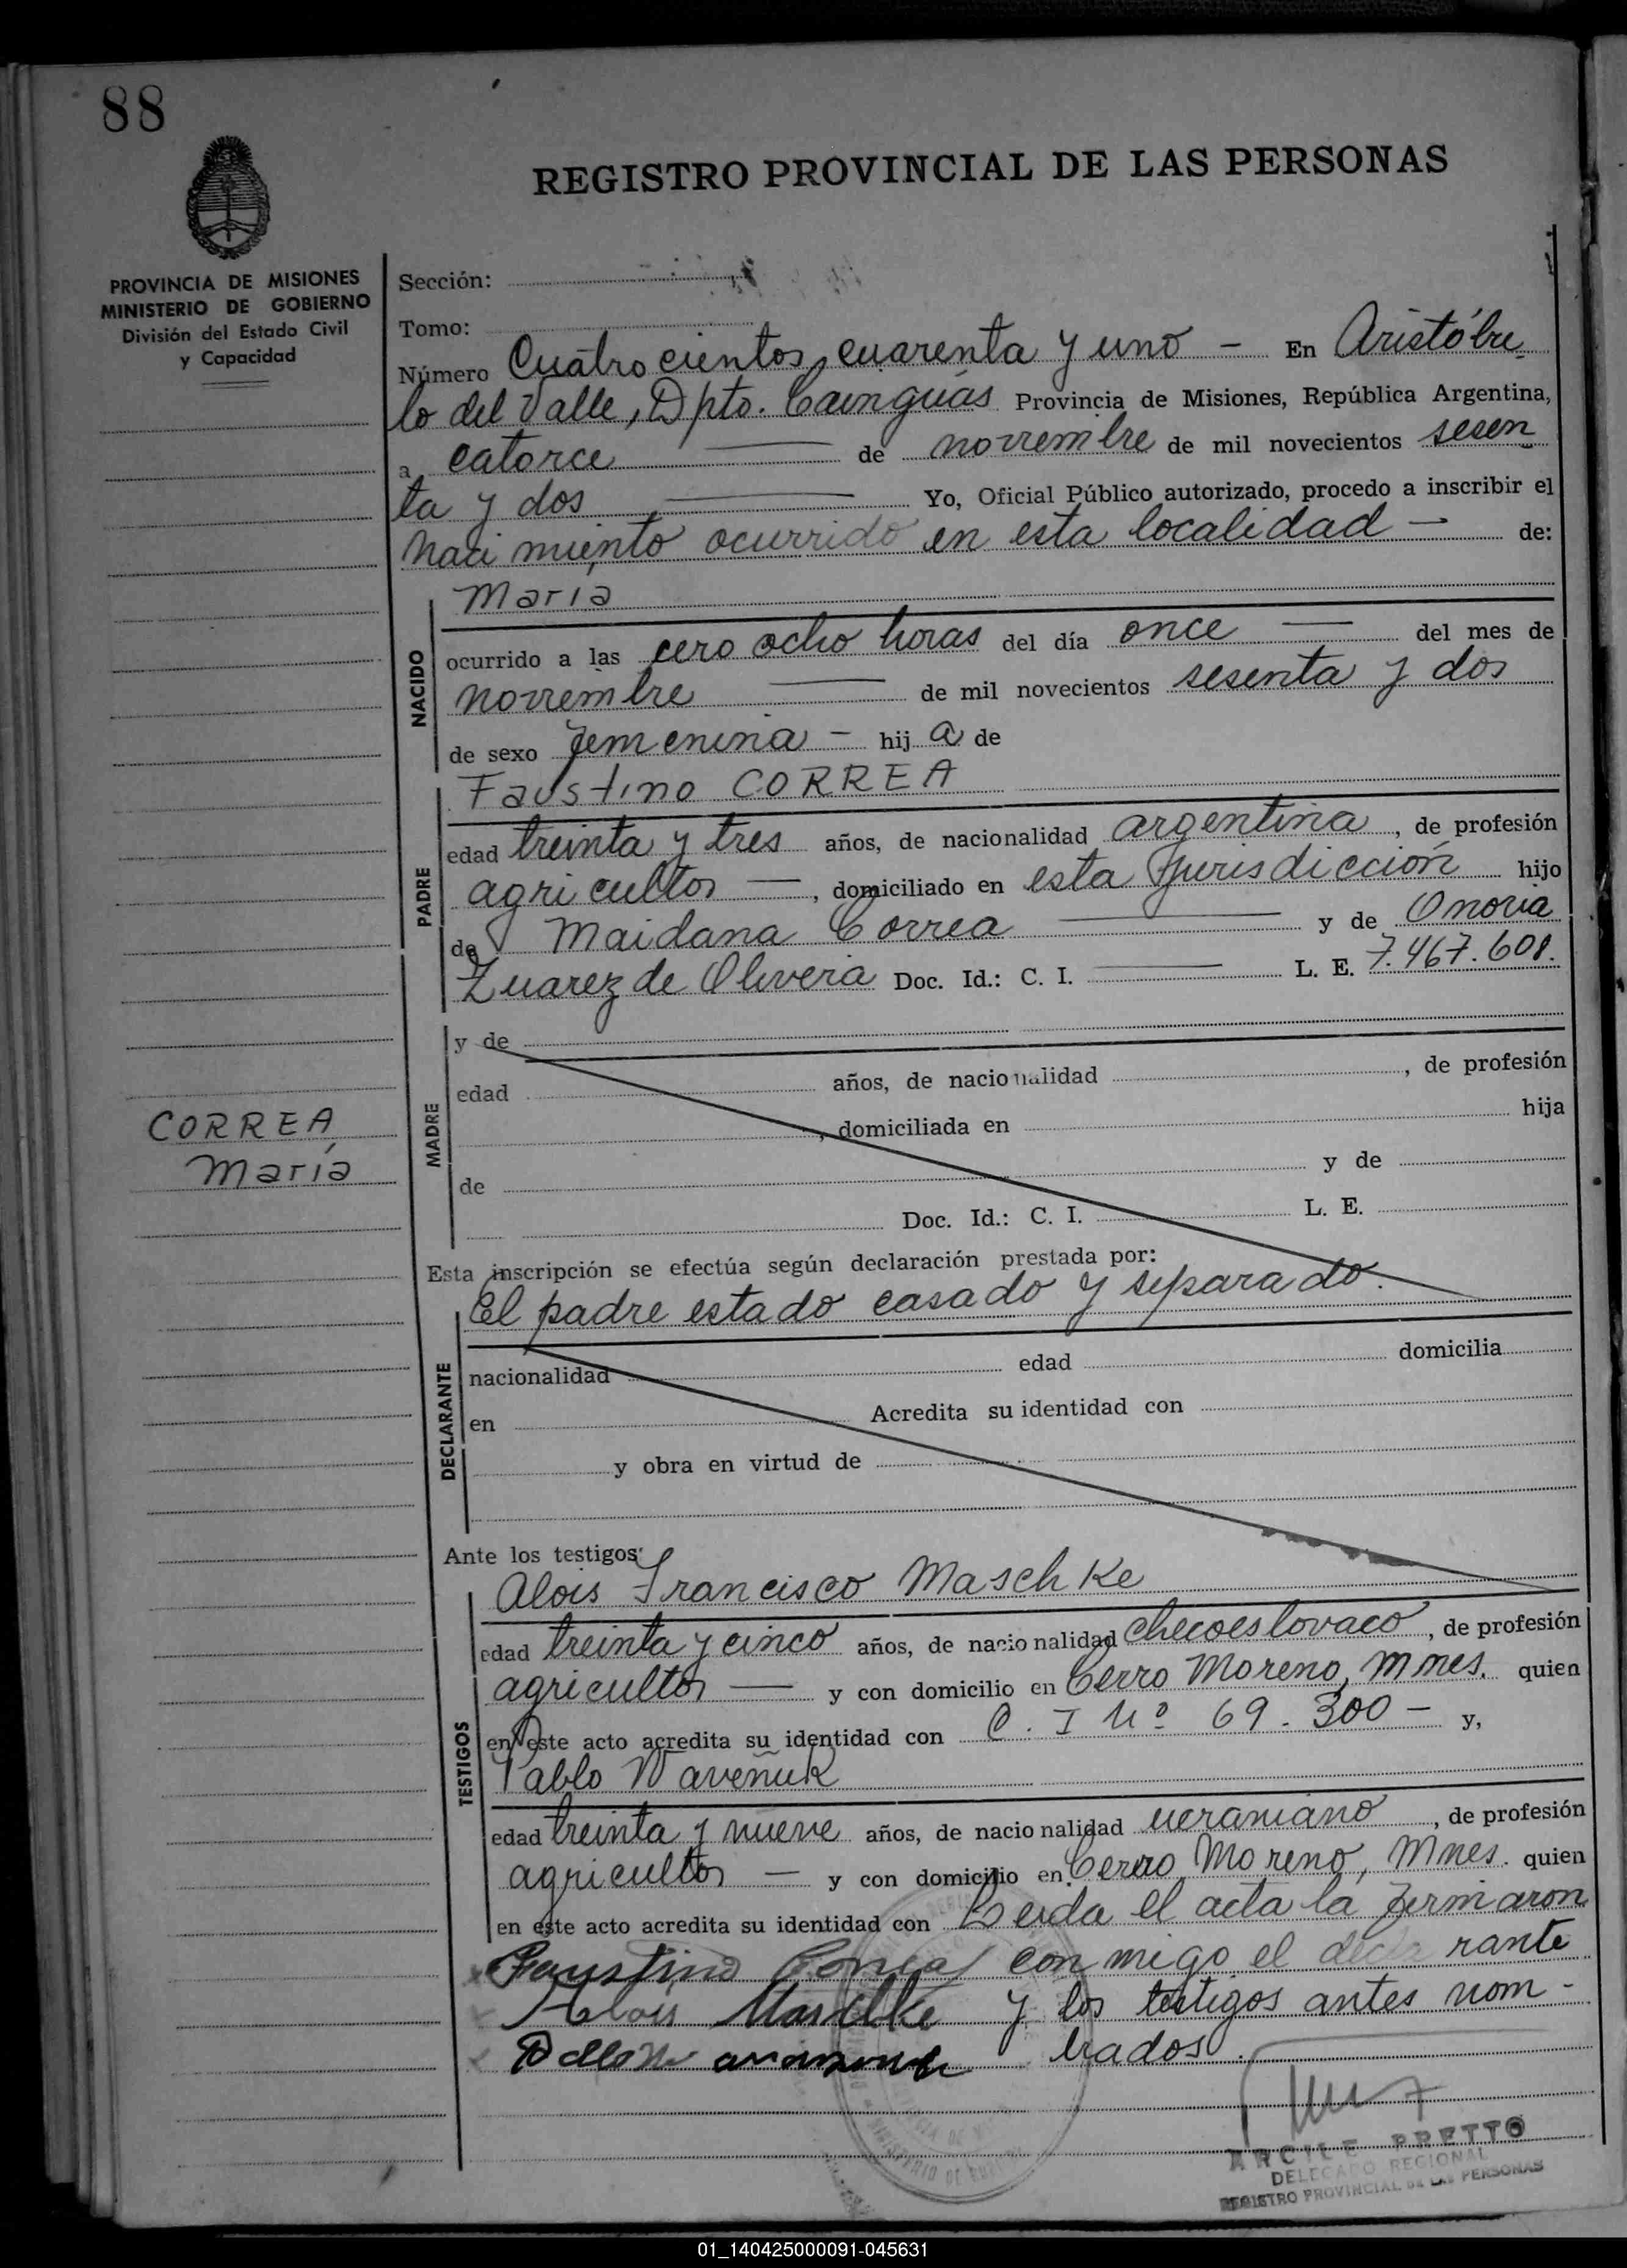 88
REGISTRO PROVINCIAL DE LAS PERSONAS
PROVINCIA DE MISIONES
MINISTERIO DE GOBIERNO
División del Estado Civil
y Capacidad
Sección:
Tomo:
Número Cuatrocientos cuarenta y uno - En Aristóbu
lo del Valle, Dpto. Cainguás Provincia de Misiones, República Argentina,
a catorce de noviembre de mil novecientos sesen
ta y dos Yo, Oficial Público autorizado, procedo a inscribir el
nacimiento ocurrido en esta localidad - de:
NACIDO
María
ocurrido a las cero ocho horas del día once del mes de
noviembre de mil novecientos sesenta y dos
de sexo femenina - hij a de
PADRE
Faustino CORREA
edad treinta y tres años, de nacionalidad argentina, de profesión
agricultor, domiciliado en esta jurisdicción hijo
de Maidana Correa y de Onoria
Zuarez de Olivera Doc. Id.: C. I. L. E. 7.467.601.
MADRE
y de
edad años, de nacionalidad , de profesión
, domiciliada en hija
de y de
Doc. Id.: C. I. L. E.
CORREA
María
Esta inscripción se efectúa según declaración prestada por:
DECLARANTE
El padre estado casado y separado.
nacionalidad edad domicilia
en Acredita su identidad con
y obra en virtud de
Ante los testigos:
TESTIGOS
Alois Francisco Maschke
edad treinta y cinco años, de nacionalidad checoeslovaco, de profesión
agricultor y con domicilio en Cerro Moreno, Mnes. quien
en este acto acredita su identidad con C. I Nº 69.300 - y,
Pablo Waveñuk
edad treinta y nueve años, de nacionalidad ucraniano, de profesión
agricultor - y con domicilio en Cerro Moreno, Mnes. quien
en este acto acredita su identidad con Leida el acta la firmaron
Faustino Correa conmigo el declarante
Alois Maschke y los testigos antes nom-
brados.
ARCILE PRETTO
DELEGADO REGIONAL
REGISTRO PROVINCIAL DE LAS PERSONAS
01_140425000091-045631